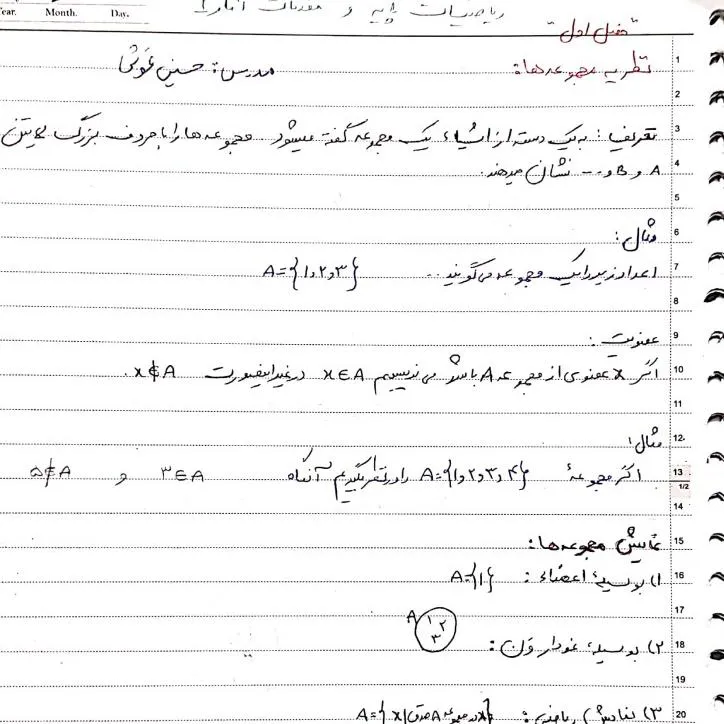 Year. Month. Day.
ریاضیات پایه و مقدمات آمار 1
"فصل اول"
1 نظریه مجموعه‌ها: مدرس:
2
3 تعریف: به یک دسته از اشیاء یک مجموعه گفته میشود مجموعه‌ها را با حروف بزرگ لاتین
4 A و B و .... نشان میدهند.
5
6 مثال:
7 اعداد زیر را یک مجموعه می‌گویند .. A={۱,۲,۳}
8
9 عضویت:
10 اگر x عضوی از مجموعه A باشد می نویسیم x∈A در غیر اینصورت x∉A.
11
12 مثال:
13 اگر مجموعهٔ A={۱,۲,۳,۴} را در نظر بگیریم آنگاه ۳∈A و ۵∉A
1/2
14
15 نمایش مجموعه‌ها:
16 ۱) بوسیلهٔ اعضاء: A={۱}
17
18 ۲) بوسیلهٔ نمودار ون: A ۱ ۲ ۳
19
20 ۳) نمایش ریاضی: A={x|